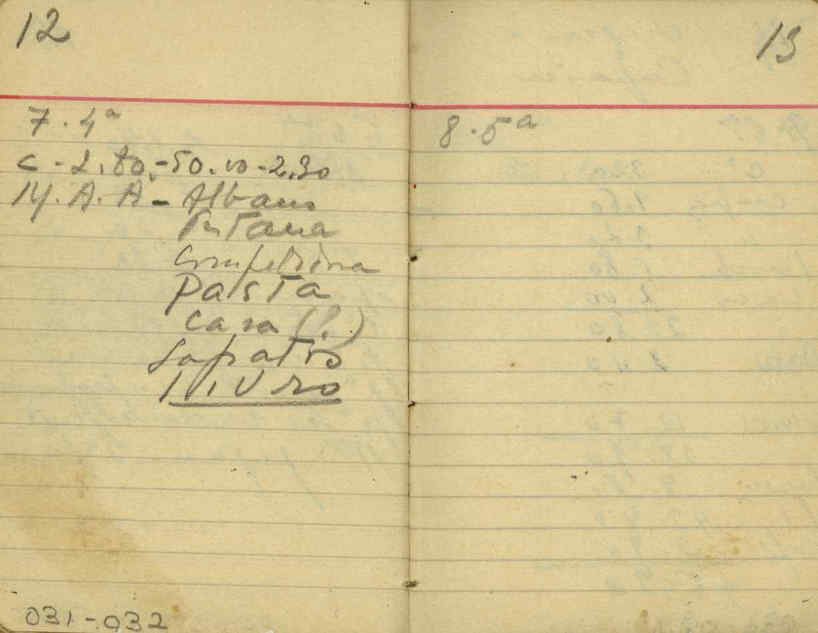 12
7. 4ª
C - 2,80 - 50.00 - 2,30
14. A. A - Albano
Pasta
Casa (?)
Sapatos
Livro
031-032
13
8. 5ª